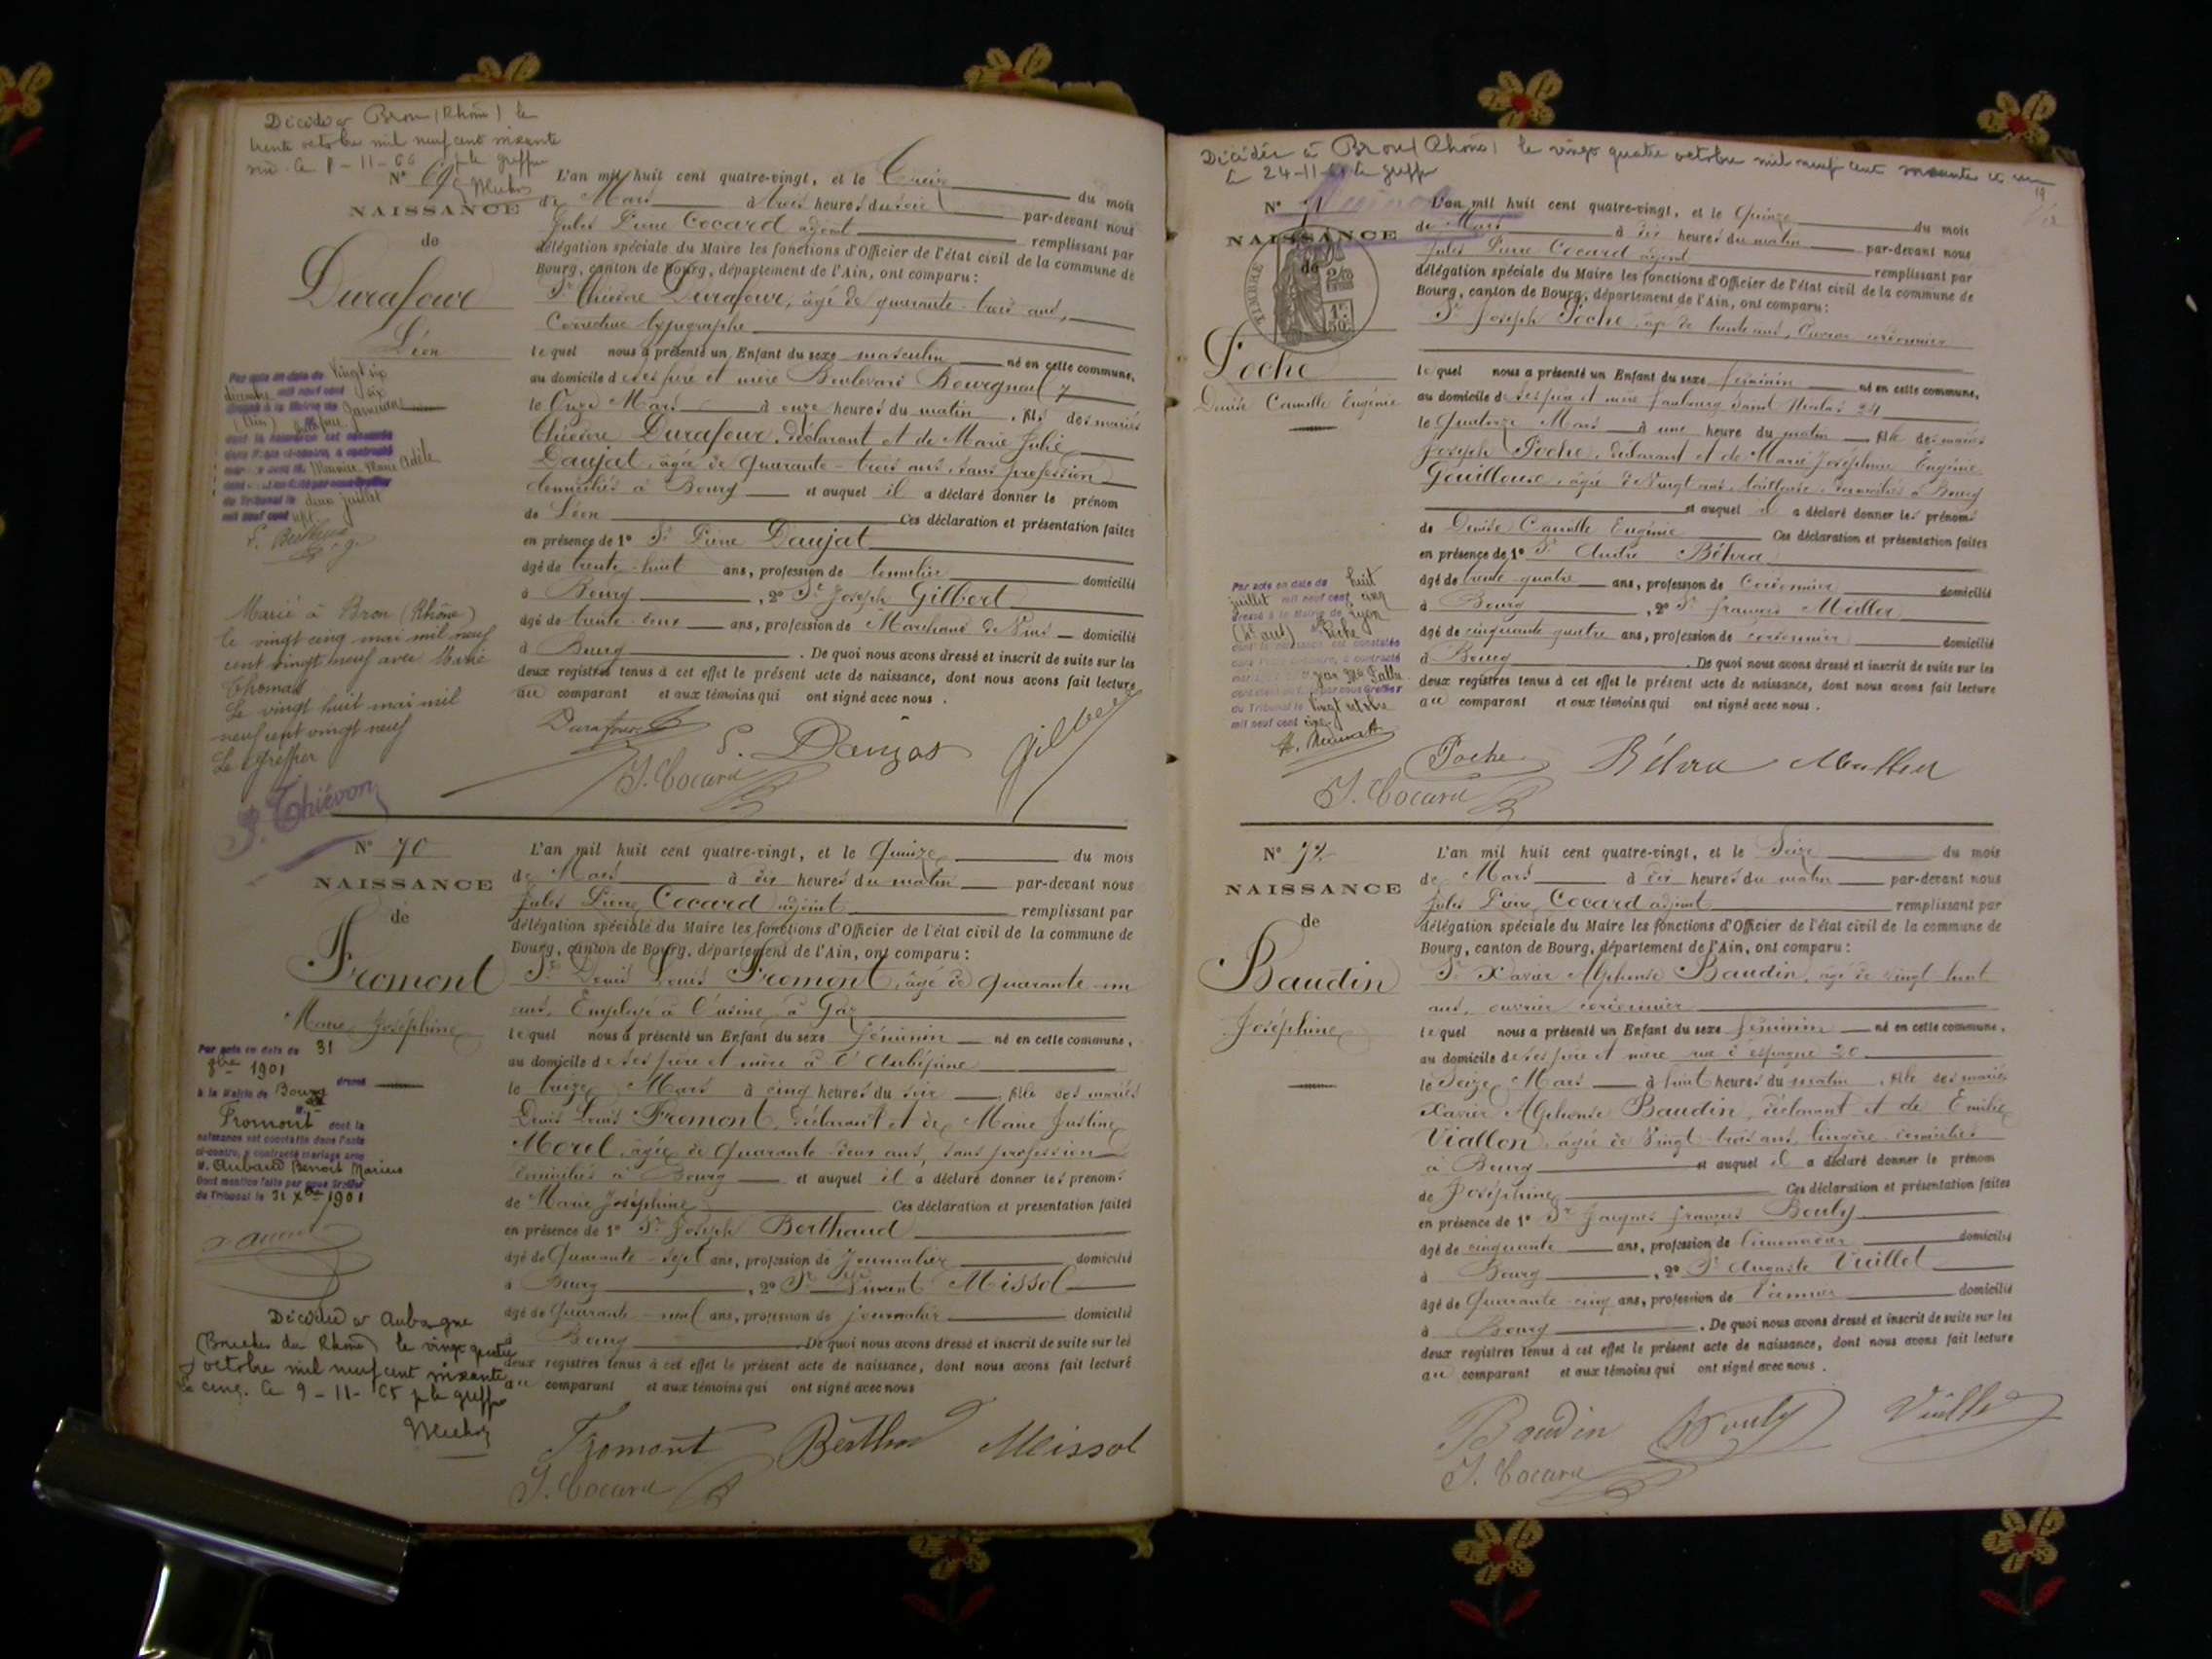 Décédé à Bron (Rhône) le
trente octobre mil neuf cent soixante
six. Le 8-11-66 p. le greffier
N° 69
NAISSANCE
de
Durafour
Léon
Par acte en date du vingt six
décembre mil neuf cent six
dressé à la Mairie de Jasseron
(Ain)
dont la naissance est constatée
dans l'acte ci-contre, a contracté
mariage avec Mlle Meunier Marie Adèle
du Tribunal le deux juillet
mil neuf cent sept.
Marié à Bron (Rhône)
le vingt cinq mai mil neuf
cent vingt neuf avec Marie
Thomas
Le vingt huit mai mil
neuf cent vingt neuf
Le Greffier
P. Thiévon
L'an mil huit cent quatre-vingt, et le Treize du mois
de Mars à trois heures du soir par-devant nous
Jules Pierre Cocard adjoint remplissant par
délégation spéciale du Maire les fonctions d'Officier de l'état civil de la commune de
Bourg, canton de Bourg, département de l'Ain, ont comparu :
Sr Théodore Durafour, âgé de quarante-trois ans,
Correcteur typographe
lequel nous a présenté un Enfant du sexe masculin né en cette commune,
au domicile de ses père et mère Boulevard Bourgneuf 7
le Onze Mars à onze heures du matin, fils des mariés
Théodore Durafour, déclarant et de Marie Julie
Daujat, âgée de quarante-trois ans, sans profession
domiciliés à Bourg et auquel il a déclaré donner le prénom
de Léon Ces déclaration et présentation faites
en présence de 1° Sr Pierre Daujat
âgé de trente-huit ans, profession de tonnelier domicilié
à Bourg, 2° Sr Joseph Gilbert
âgé de trente-deux ans, profession de Marchand de Vins domicilié
à Bourg. De quoi nous avons dressé et inscrit de suite sur les
deux registres tenus à cet effet le présent acte de naissance, dont nous avons fait lecture
au comparant et aux témoins qui ont signé avec nous.
Durafour P. Daujat Gilbert
J. Cocard
N° 70
NAISSANCE
de
Fromont
Marie Joséphine
Par acte en date du 31
8bre 1901 dressé
à la Mairie de Bourg
Fromont dont la
naissance est constatée dans l'acte
ci-contre, a contracté mariage avec
M. Aubaud Benoît Marius
Dont mention faite par nous Greffier
du Tribunal le 31 Xbre 1901
Décédée à Aubagne
(Bouches du Rhône) le vingt quatre
octobre mil neuf cent soixante
cinq. Le 9-11-65 p. le greffier
L'an mil huit cent quatre-vingt, et le Quinze du mois
de Mars à dix heures du matin par-devant nous
Jules Pierre Cocard adjoint remplissant par
délégation spéciale du Maire les fonctions d'Officier de l'état civil de la commune de
Bourg, canton de Bourg, département de l'Ain, ont comparu :
Sr Denis Louis Fromont, âgé de quarante-un
ans, Employé à l'usine à Gaz
lequel nous a présenté un Enfant du sexe féminin né en cette commune,
au domicile de ses père et mère à l'Aubépine
le treize Mars à cinq heures du soir, fille des mariés
Denis Louis Fromont, déclarant et de Marie Justine
Morel, âgée de Quarante-deux ans, sans profession
domiciliés à Bourg et auquel il a déclaré donner les prénoms
de Marie Joséphine Ces déclaration et présentation faites
en présence de 1° Sr Joseph Berthaud
âgé de Quarante-sept ans, profession de Journalier domicilié
à Bourg, 2° Sr Vincent Missol
âgé de Quarante-neuf ans, profession de journalier domicilié
à Bourg. De quoi nous avons dressé et inscrit de suite sur les
deux registres tenus à cet effet le présent acte de naissance, dont nous avons fait lecture
au comparant et aux témoins qui ont signé avec nous
Fromont Berthaud Meissol
J. Cocard
Décédée à Bron (Rhône) le vingt quatre octobre mil neuf cent soixante et un
Le 24-11- p. le greffier
19
N° 71
NAISSANCE
de
TIMBRE
Poche
Denise Camille Eugénie
Par acte en date du huit
juillet mil neuf cent cinq
dressé à la Mairie de Lyon
(4e arrt) Poche
dont la naissance est constatée
du Tribunal le vingt octobre
mil neuf cent cinq
L'an mil huit cent quatre-vingt, et le Quinze du mois
de Mars à dix heures du matin par-devant nous
Jules Pierre Cocard adjoint remplissant par
délégation spéciale du Maire les fonctions d'Officier de l'état civil de la commune de
Bourg, canton de Bourg, département de l'Ain, ont comparu :
Sr Joseph Poche, âgé de trente ans, Ouvrier cordonnier
lequel nous a présenté un Enfant du sexe féminin né en cette commune,
au domicile de ses père et mère faubourg Saint Nicolas 24
le Quatorze Mars à une heure du matin, fille des mariés
Joseph Poche, déclarant et de Marie Joséphine Eugénie
Gouilloux, âgée de Vingt ans, tailleuse, domiciliés à Bourg
et auquel il a déclaré donner les prénoms
de Denise Camille Eugénie Ces déclaration et présentation faites
en présence de 1° Sr André Bélvra
âgé de trente-quatre ans, profession de Cordonnier domicilié
à Bourg, 2° Sr François Muller
âgé de cinquante quatre ans, profession de cordonnier domicilié
à Bourg. De quoi nous avons dressé et inscrit de suite sur les
deux registres tenus à cet effet le présent acte de naissance, dont nous avons fait lecture
au comparant et aux témoins qui ont signé avec nous.
Poche Bélvra Muller
J. Cocard
N° 72
NAISSANCE
de
Baudin
Joséphine
L'an mil huit cent quatre-vingt, et le Seize du mois
de Mars à dix heures du matin par-devant nous
Jules Pierre Cocard adjoint remplissant par
délégation spéciale du Maire les fonctions d'Officier de l'état civil de la commune de
Bourg, canton de Bourg, département de l'Ain, ont comparu :
Sr Xavier Alphonse Baudin, âgé de vingt huit
ans, ouvrier cordonnier
lequel nous a présenté un Enfant du sexe féminin né en cette commune,
au domicile de ses père et mère rue d'espagne 20
le Seize Mars à huit heures du matin, fille des mariés
Xavier Alphonse Baudin, déclarant et de Emilie
Viallon, âgée de Vingt-trois ans, lingère domiciliés
à Bourg et auquel il a déclaré donner le prénom
de Joséphine Ces déclaration et présentation faites
en présence de 1° Sr Jacques François Bouly
âgé de cinquante ans, profession de domicilié
à Bourg, 2° Sr Auguste Vuillet
âgé de Quarante-cinq ans, profession de Vannier domicilié
à Bourg. De quoi nous avons dressé et inscrit de suite sur les
deux registres tenus à cet effet le présent acte de naissance, dont nous avons fait lecture
au comparant et aux témoins qui ont signé avec nous.
Baudin Bouly Vuillet
J. Cocard